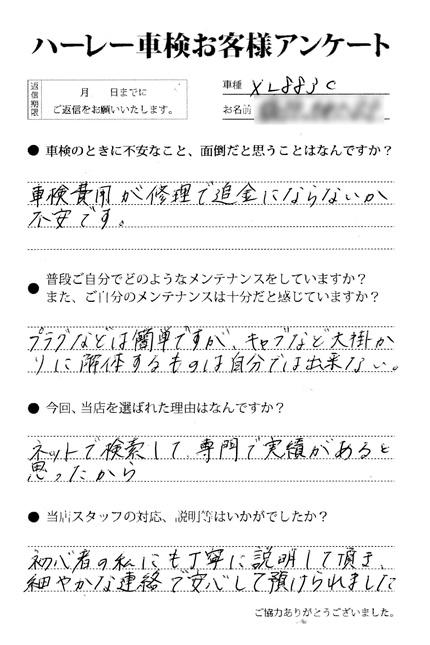 ハーレー車検お客様アンケート
返信期限
月　　日までに
ご返信をお願いいたします。
車種 XL883C
お名前
● 車検のときに不安なこと、面倒だと思うことはなんですか？
車検費用が修理で追金にならないか
不安です。
● 普段ご自分でどのようなメンテナンスをしていますか？
また、ご自分のメンテナンスは十分だと感じていますか？
プラグなどは簡単ですが、キャブなど大掛か
りに解体するものは自分では出来ない。
● 今回、当店を選ばれた理由はなんですか？
ネットで検索して専門で実績があると
思ったから
● 当店スタッフの対応、説明等はいかがでしたか？
初心者の私にも丁寧に説明して頂き、
細やかな連絡で安心して預けられました
ご協力ありがとうございました。